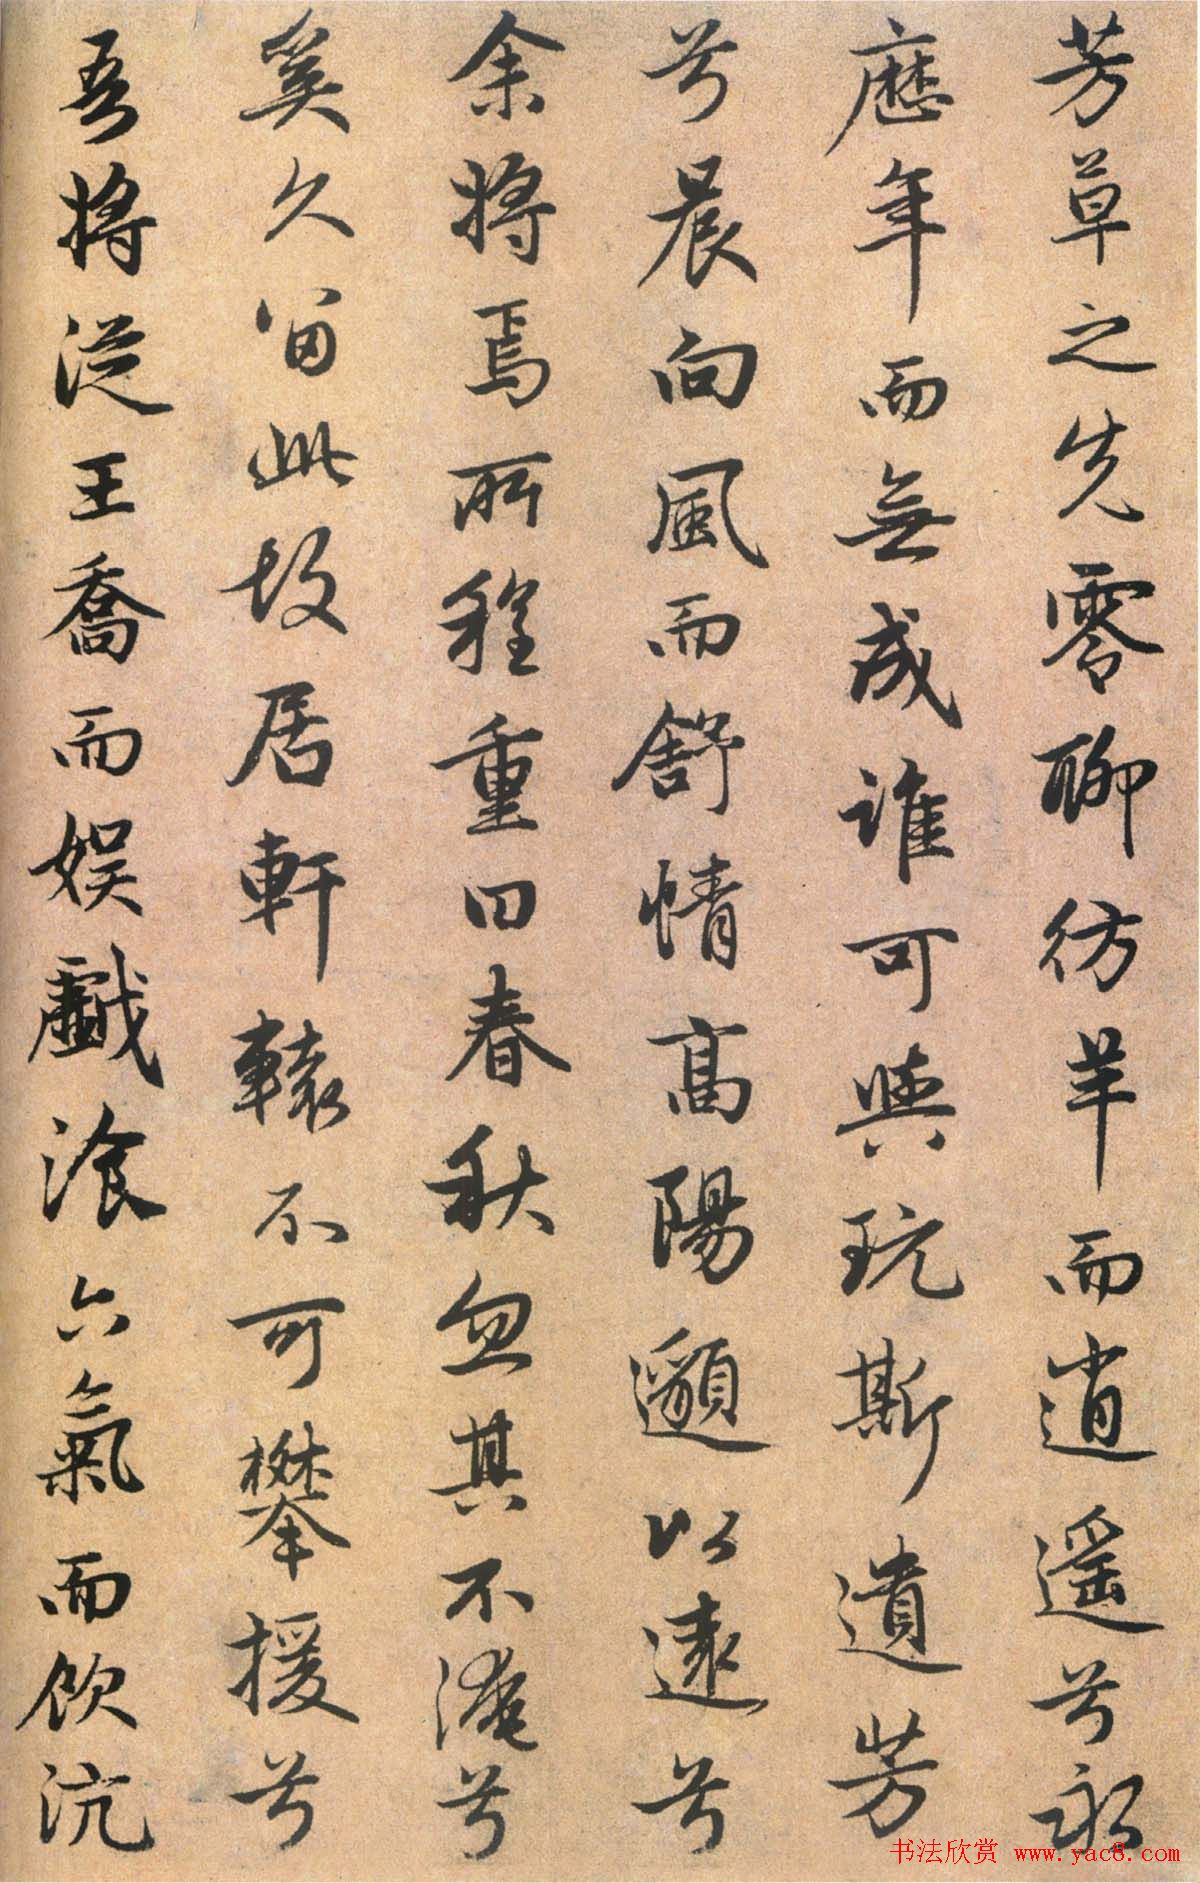 芳草之先零聊彷羊而逍遙兮永
歷年而無成誰可與玩斯遺芳
兮晨向風而舒情高陽邈以遠兮
余將焉所程重曰春秋忽其不淹兮
奚久留此故居軒轅不可攀援兮
吾將從王喬而娛戲湌六氣而飲沆
书法欣赏 www.yac8.com